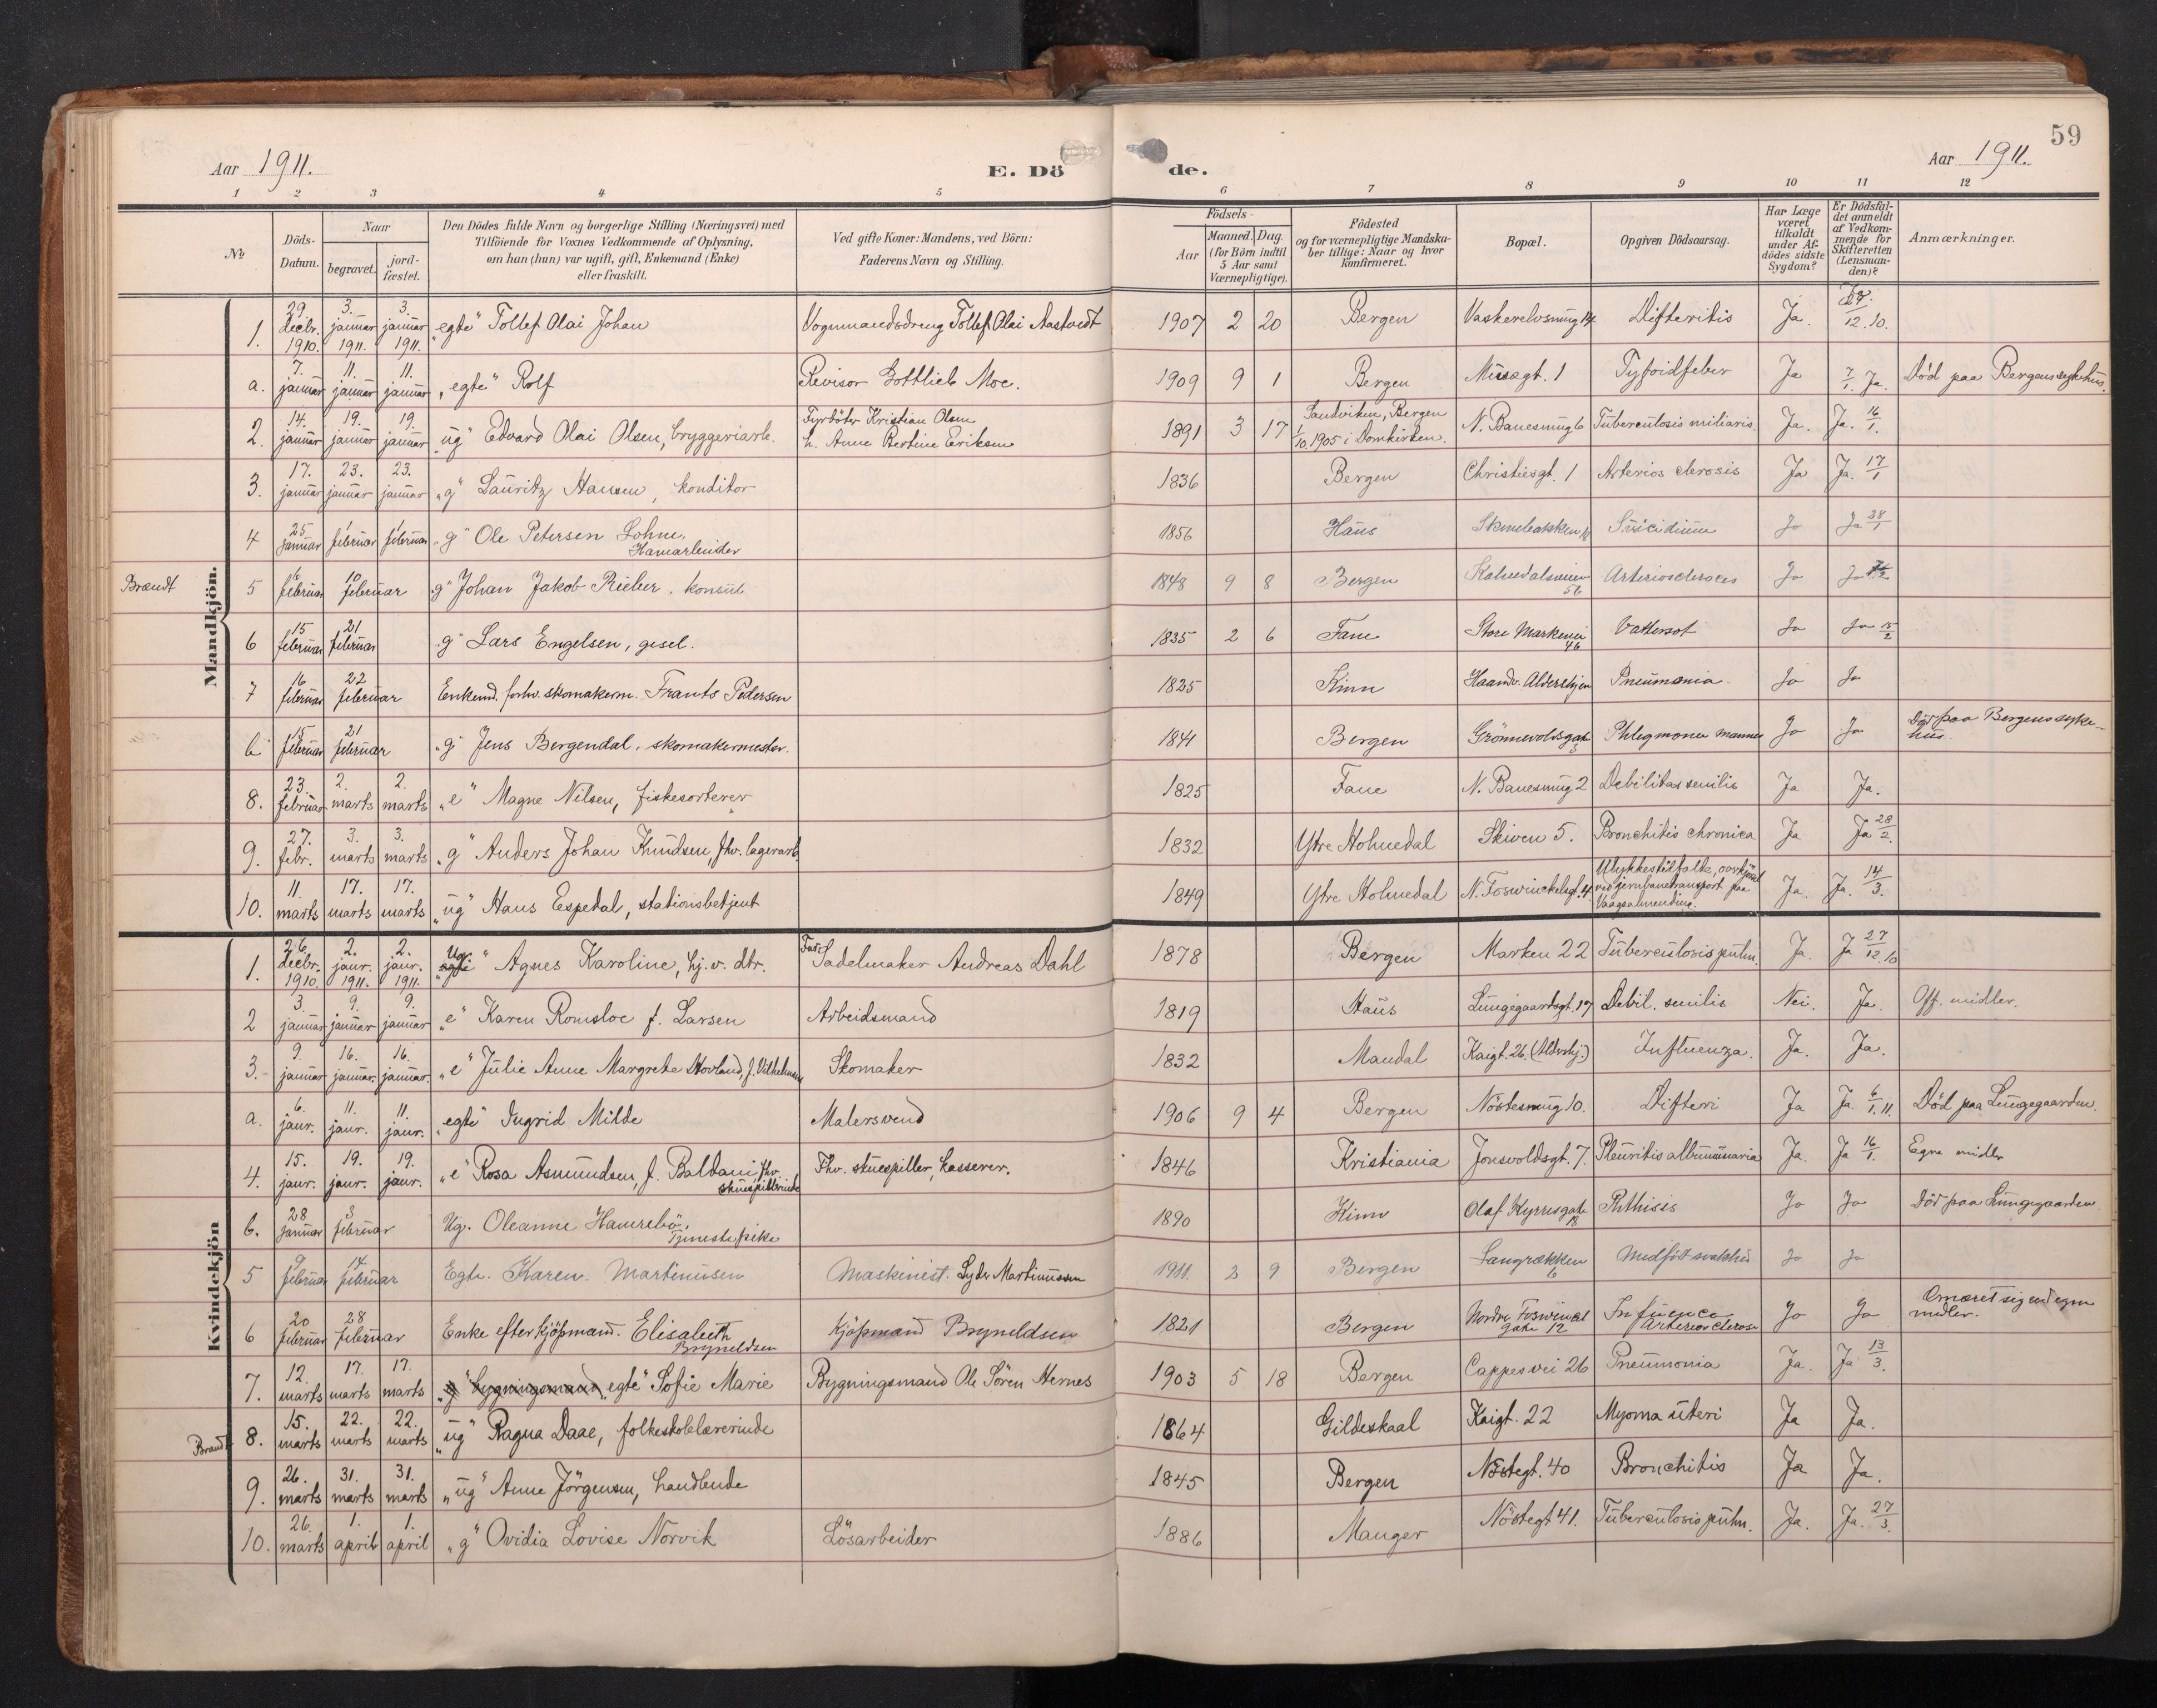 59
Aar 1911. E. Dö de. Aar 1911.
1 2 3 4 5 6 7 8 9 10 11 12
No
Döds-Datum.
Naar
begravet. jord-fæstet.
Den Dödes fulde Navn og borgerlige Stilling (Næringsvei) med
Tilföiende for Voxnes Vedkommende af Oplysning,
om han (hun) var ugift, gift, Enkemand (Enke)
eller fraskilt.
Ved gifte Koner: Mandens, ved Börn:
Faderens Navn og Stilling.
Födsels-
Aar Maaned. Dag.
(for Börn indtil
5 Aar samt
Værnepligtige).
Födested
og for værnepligtige Mandska-
ber tillige: Naar og hvor
konfirmeret.
Bopæl.
Opgiven Dödsaarsag.
Har Læge
været
tilkaldt
under Af-
dödes sidste
Sygdom?
Er Dödsfal-
det anmeldt
af Vedkom-
mende for
Skifteretten
(Lensman-
den)?
Anmærkninger.
Mandkjön.
1. 29. decbr. 1910. 3. januar 1911. 3. januar 1911. "egte" Tollef Olai Johan Vognmandsdreng Tollef Olai Aastvedt 1907 2 20 Bergen Vaskerelvsmug 14 Difteritis Ja. 12.10.
a. 7. januar 11. januar 11. januar "egte" Rolf Revisor Gottlieb Moe. 1909 9 1 Bergen 1 Tyfoidfeber Ja 7/1. Ja. Död paa Bergens sykehus.
2. 14. januar 19. januar 19. januar "ug" Edvard Olai Olsen, bryggeriarb. Fyrböter Kristian Olsen
h. Anne Bertine Eriksen 1891 3 17 Sandviken, Bergen
1/10. 1905 i Domkirken. N. Banesmug 6 Tuberculosis miliaris. Ja. Ja. 16/1.
3. 17. januar 23. januar 23. januar "g" Lauritz Hansen, konditor 1836 Bergen Christiesgt. 1 Arterios clerosis Ja Ja. 17/1
4 25 januar 1 februar 1 februar "g" Ole Petersen Lohne.
1856 Haus Suicidium Ja Ja
Brandt 5 6 februar 10 februar "g" Johan Jakob Rieber, konsul 1848 9 8 Bergen Kalvedalsveien
56 Arteriosclerosis Ja Ja
6 15 februar 21 februar "g" Lars Engelsen, gesel. 1835 2 6 Fane Store Markevei
46 Vattersot Ja Ja 15/2
7 16 februar 22 februar Enkemd. forhv. skomakerm. Frants Pedersen 1825 Kinn Haandv. Aldershjem Pneumonia Ja Ja
b 15 februar 21 februar "g" Jens Bergendal, skomakermester. 1841 Bergen Grönnevoldsgate
3 Phlegmone Ja Ja Död paa Bergens syke-
hus.
8. 23. februar 2. marts 2. marts "e" Magne Nilsen, fiskesorterer 1825 Fane N. Banesmug 2 Debilitas senilis Ja Ja.
9. 27. febr. 3. marts 3. marts "g" Anders Johan Knudsen, fhv. lagerarb. 1832 Ytre Holmedal Skiven 5. Bronchitis chronica Ja Ja 28/2.
10. 11. marts 17. marts 17. marts "ug" Hans Espedal, stationsbetjent 1849 Ytre Holmedal N. Foswinckelsgt. 4. Ulykkestilfælde, overkjört
ved jernbanetransport paa
Vaagsalmending. Ja. Ja. 14/3.
Kvindekjön
1. 26. decbr. 1910. 2. janr. 1911. 2. janr. 1911. Ug. egte" Agnes Karoline, hj.v. dtr. Far: Sadelmaker Andreas Dahl 1878 Bergen Marken 22 Tuberculosis pulm. Ja. Ja 27/12.10
2 3. januar 9. januar 9. januar "e" Karen Romsloe f. Larsen Arbeidsmand 1819 Haus Lungegaardsgt. 17 Debil. senilis Nei. Ja. Off. midler.
3. 9. januar 16. januar. 16. januar. "e" Julie Anne Margrete Hovland, f. Vilhelmsen Skomaker 1832 Mandal Kaigt. 26. (Aldershj.) Influenza. Ja. Ja.
a. 6. janr. 11. janr. 11. janr. "egte" Ingrid Milde Malersvend 1906 9 4 Bergen Nöstesmug 10. Difteri Ja Ja. 6/1.11. Död paa Lungegaarden.
4. 15. janr. 19. janr. 19. janr. "e" Rosa Asmundsen, f. Baldani, fhv.
skuespillerinde Fhv. skuespiller, kasserer. 1846 Kristiania Jonsvoldsgt. 7. Pleuritis albuminaria Ja. Ja 16/1. Egne midler
b. 28 januar 3 februar Ug. Oleanne Hamrebö,
Tjenestepike 1890 Kinn Olaf Kyrresgate
18 Phthisis Ja Ja Död paa Lungegaarden
5 9 februar 14 februar Egte. Karen Martinusen Maskinist. Lyder Martinussen 1911. 2 9 Bergen Langrækken
6 Medfödt svakhet Ja Ja
6 20 februar 28 februar Enke efter kjöpmand. Elisabeth
Bryneldsen Kjöpmand Bryneldsen 1821 Bergen Nordre Foswinckel
gate 12 Influenca
Arteriosclerose Ja Ja Ernæret sig ved egne
midler.
7. 12. marts 17. marts 17. marts "g" bygningsmand "egte" Sofie Marie Bygningsmand Ole Sören Hernes 1903 5 18 Bergen Cappes vei 26 Pneumonia Ja. Ja 13/3.
Brandt 8. 15. marts 22. marts 22. marts "ug" Ragna Daae, folkeskolelærerinde 1864 Gildeskaal Kaigt. 22 Myoma uteri Ja Ja.
9. 26. marts 31. marts 31. marts "ug" Anne Jörgensen, handlende 1845 Bergen Nöstegt. 40 Bronchitis Ja Ja.
10. 26. marts 1. april 1. april "g" Ovidia Lovise Norvik Lösarbeider 1886 Manger Nöstegt 41. Tuberculosis pulm. Ja. Ja. 27/3.